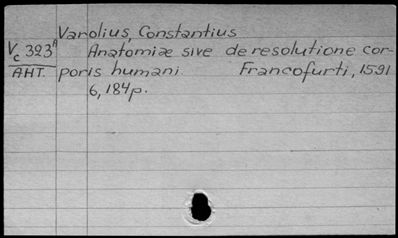 Varolius, Constantius
Vc 323A Anatomiæ sive de resolutione cor-
AHT. poris humani. Francofurti, 1591
6, 184p.